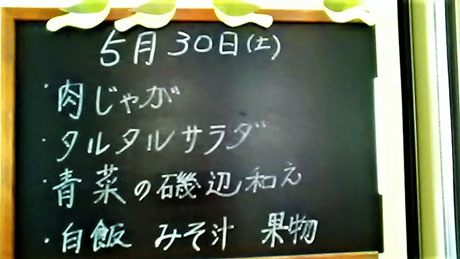 5月30日(土)
・肉じゃが
・タルタルサラダ
・青菜の磯辺和え
・白飯 みそ汁 果物